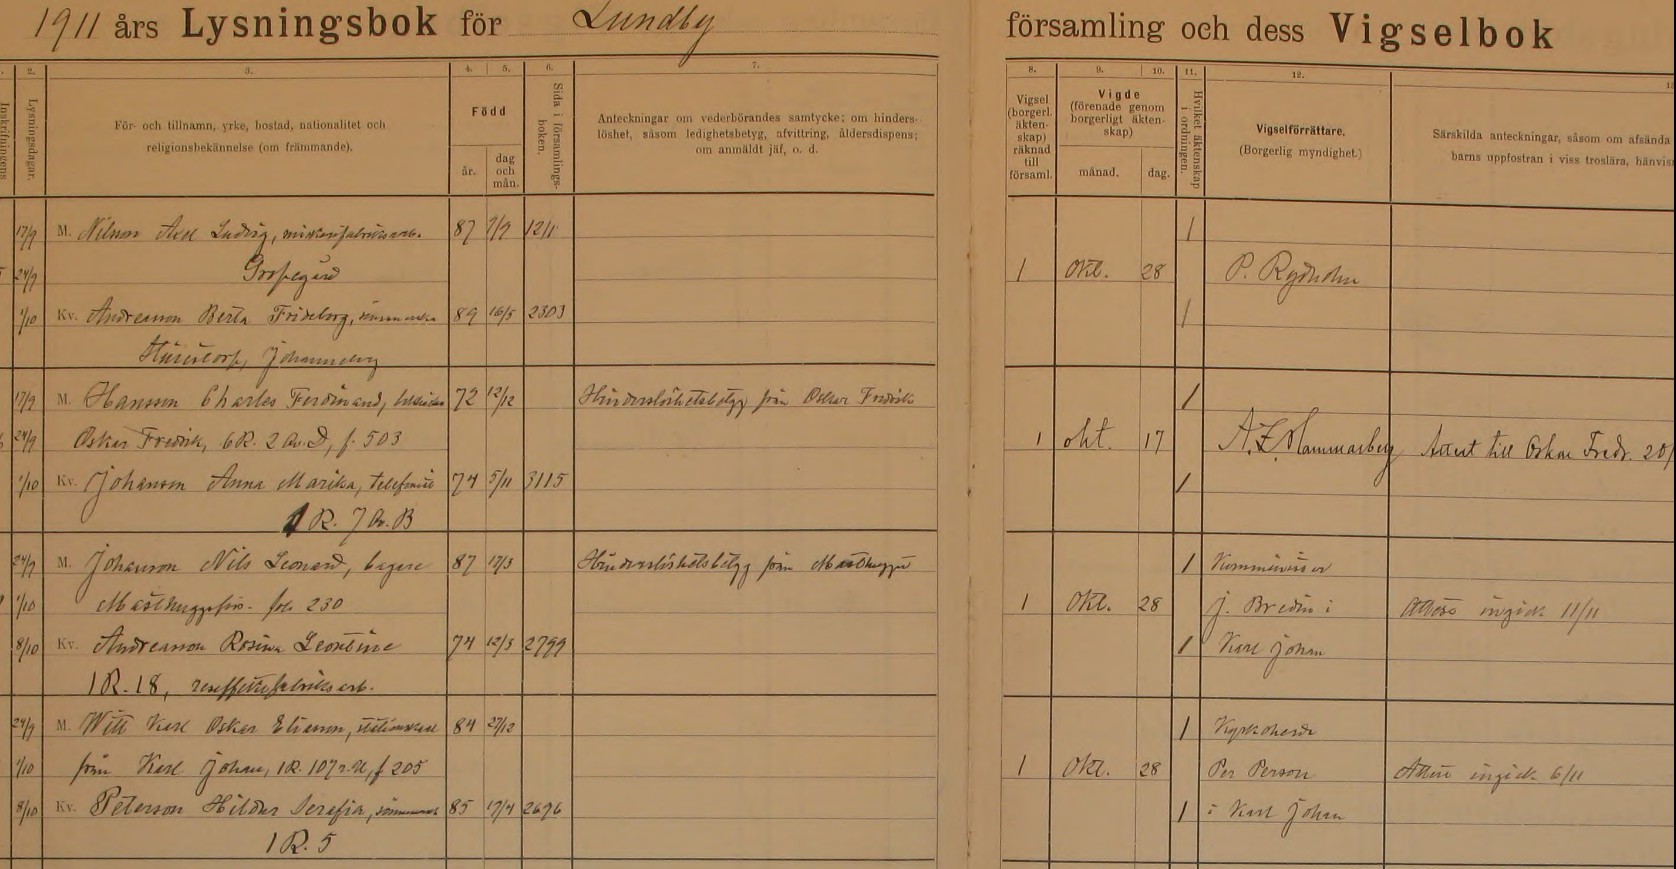 1911 års Lysningsbok för Lundby församling och dess Vigselbok
2. 3. 4. 5. 6. 7. 8. 9. 10. 11. 12.
Inskrifningens
Lysningsdagar.
För- och tillnamn, yrke, bostad, nationalitet och
religionsbekännelse (om främmande).
Född
år.
dag
och
mån.
Sida i församlings-
boken.
Anteckningar om vederbörandes samtycke; om hinders-
löshet, såsom ledighetsbetyg, afvittring, åldersdispens;
om anmäldt jäf, o. d.
Vigsel
(borgerl.
äkten-
skap)
räknad
till
församl.
Vigde
(förenade genom
borgerligt äkten-
skap)
månad.
dag.
Hvilket äktenskap
i ordningen.
Vigselförrättare.
(Borgerlig myndighet.)
Särskilda anteckningar, såsom om afsända
barns uppfostran i viss troslära, hänvis
17/9 M. Nilsson Axel Ludvig, 87 7/9 1211 1
24/9 Gropegård 1 Okt. 28 P. Rydholm
1/10 Kv. Andreasson Berta Frideborg, 89 16/5 2303 1
17/9 M. Hansson Charles Ferdinand, 72 12/12 Hinderslöshetsbetyg från Oskar Fredrik 1
24/9 Oskar Fredrik, 6R. 2 Av. D, f. 503 1 okt. 17 A. Z. Hammarberg Attest till Oskar Fredr. 20/
1/10 Kv. Johanson Anna Marika, telefonist 74 5/11 3115 1
1 R. 7 Av. B
24/9 M. Johanson Nils Leonard, bagare 87 17/3 Hinderslöshetsbetyg från Masthugget 1 Komminister
1/10 Masthuggsför. fol. 230 1 Okt. 28 J. Bredin i Attest ingick 11/11
8/10 Kv. Andreasson Rosina Leontine 74 12/3 2799 1 Karl Johan
1 R. 18, reseffektfabriksarb.
24/9 M. Witt Karl Oskar Eliasson, 84 27/12 1 Kyrkoherde
1/10 från Karl Johan, 1R. 107 f 205 1 Okt. 28 Per Person Attest ingick 6/11
8/10 Kv. Peterson Hildur Serafia, 85 17/4 2696 1 i Karl Johan
1 R. 5